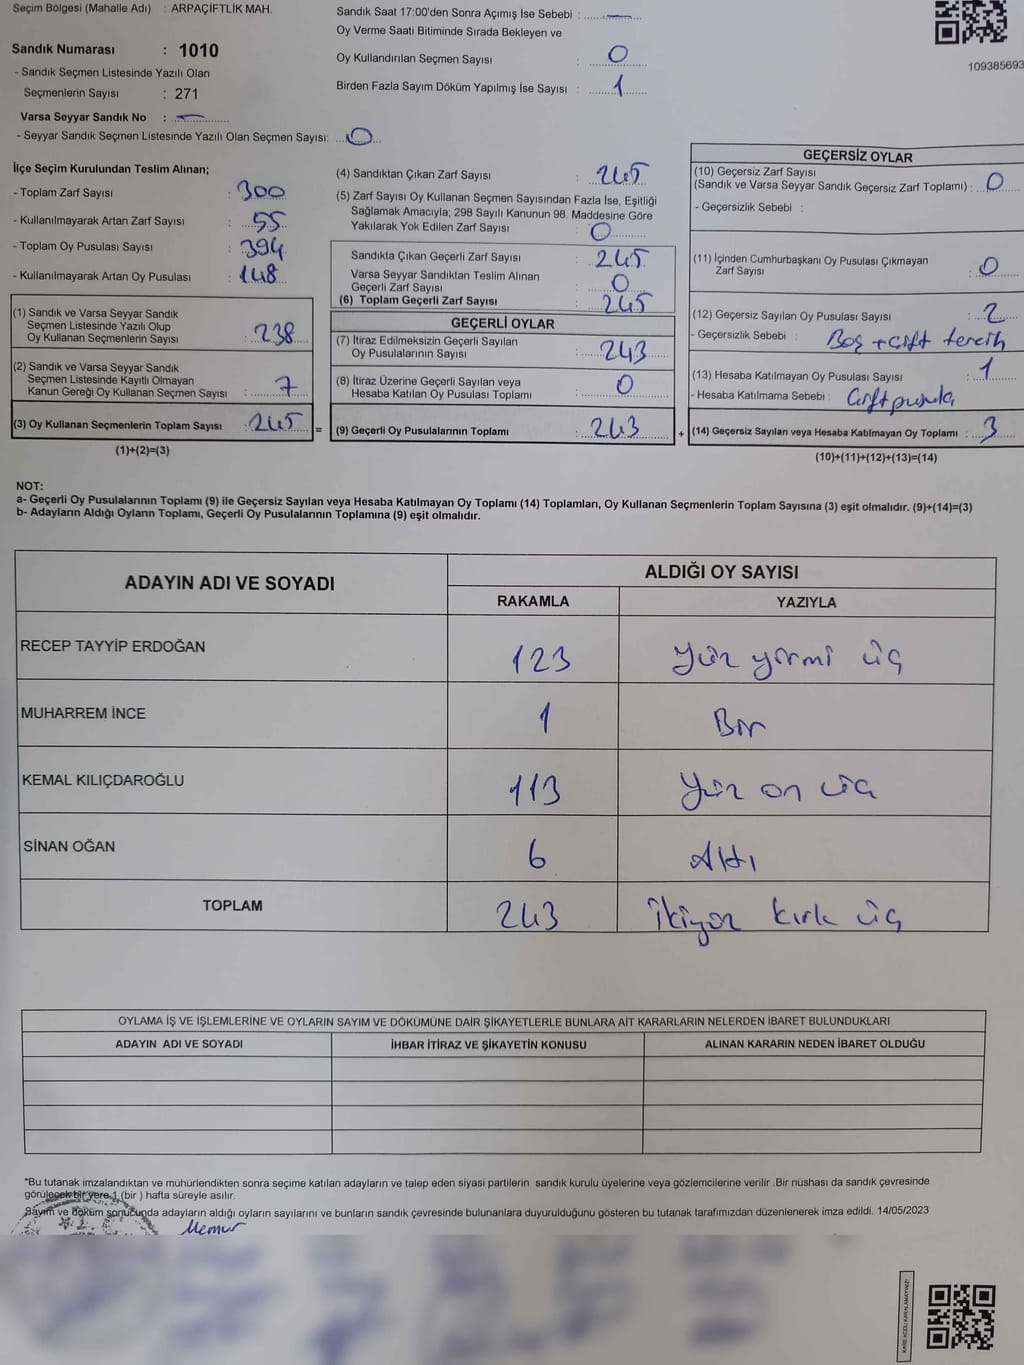 Seçim Bölgesi (Mahalle Adı) : ARPAÇİFTLİK MAH.
Sandık Numarası : 1010
- Sandık Seçmen Listesinde Yazılı Olan
Seçmenlerin Sayısı : 271
Varsa Seyyar Sandık No : —
- Seyyar Sandık Seçmen Listesinde Yazılı Olan Seçmen Sayısı: 0
Sandık Saat 17:00'den Sonra Açımış İse Sebebi : —
Oy Verme Saati Bitiminde Sırada Bekleyen ve
Oy Kullandırılan Seçmen Sayısı : 0
Birden Fazla Sayım Döküm Yapılmış İse Sayısı : 1
109385693
İlçe Seçim Kurulundan Teslim Alınan;
- Toplam Zarf Sayısı : 300
- Kullanılmayarak Artan Zarf Sayısı : 55
- Toplam Oy Pusulası Sayısı : 394
- Kullanılmayarak Artan Oy Pusulası : 148
(1) Sandık ve Varsa Seyyar Sandık
Seçmen Listesinde Yazılı Olup
Oy Kullanan Seçmenlerin Sayısı : 238
(2) Sandık ve Varsa Seyyar Sandık
Seçmen Listesinde Kayıtlı Olmayan
Kanun Gereği Oy Kullanan Seçmen Sayısı : 7
(3) Oy Kullanan Seçmenlerin Toplam Sayısı : 245 =
(1)+(2)=(3)
(4) Sandıktan Çıkan Zarf Sayısı : 245
(5) Zarf Sayısı Oy Kullanan Seçmen Sayısından Fazla İse, Eşitliği
Sağlamak Amacıyla; 298 Sayılı Kanunun 98. Maddesine Göre
Yakılarak Yok Edilen Zarf Sayısı : 0
Sandıkta Çıkan Geçerli Zarf Sayısı : 245
Varsa Seyyar Sandıktan Teslim Alınan
Geçerli Zarf Sayısı : 0
(6) Toplam Geçerli Zarf Sayısı : 245
GEÇERLİ OYLAR
(7) İtiraz Edilmeksizin Geçerli Sayılan
Oy Pusulalarının Sayısı : 243
(8) İtiraz Üzerine Geçerli Sayılan veya
Hesaba Katılan Oy Pusulası Toplamı : 0
(9) Geçerli Oy Pusulalarının Toplamı : 243 +
GEÇERSİZ OYLAR
(10) Geçersiz Zarf Sayısı
(Sandık ve Varsa Seyyar Sandık Geçersiz Zarf Toplamı) : 0
- Geçersizlik Sebebi :
(11) İçinden Cumhurbaşkanı Oy Pusulası Çıkmayan
Zarf Sayısı : 0
(12) Geçersiz Sayılan Oy Pusulası Sayısı : 2
- Geçersizlik Sebebi : Boş + çift tercih
(13) Hesaba Katılmayan Oy Pusulası Sayısı : 1
- Hesaba Katılmama Sebebi : Çift pusula
(14) Geçersiz Sayılan veya Hesaba Katılmayan Oy Toplamı : 3
(10)+(11)+(12)+(13)=(14)
NOT:
a- Geçerli Oy Pusulalarının Toplamı (9) ile Geçersiz Sayılan veya Hesaba Katılmayan Oy Toplamı (14) Toplamları, Oy Kullanan Seçmenlerin Toplam Sayısına (3) eşit olmalıdır. (9)+(14)=(3)
b- Adayların Aldığı Oyların Toplamı, Geçerli Oy Pusulalarının Toplamına (9) eşit olmalıdır.
ADAYIN ADI VE SOYADI ALDIĞI OY SAYISI
RAKAMLA YAZIYLA
RECEP TAYYİP ERDOĞAN 123 Yüz yirmi üç
MUHARREM İNCE 1 Bir
KEMAL KILIÇDAROĞLU 113 Yüz on üç
SİNAN OĞAN 6 Altı
TOPLAM 243 İkiyüz kırk üç
OYLAMA İŞ VE İŞLEMLERİNE VE OYLARIN SAYIM VE DÖKÜMÜNE DAİR ŞİKAYETLERLE BUNLARA AİT KARARLARIN NELERDEN İBARET BULUNDUKLARI
ADAYIN ADI VE SOYADI İHBAR İTİRAZ VE ŞİKAYETİN KONUSU ALINAN KARARIN NEDEN İBARET OLDUĞU
*Bu tutanak imzalandıktan ve mühürlendikten sonra seçime katılan adayların ve talep eden siyasi partilerin sandık kurulu üyelerine veya gözlemcilerine verilir .Bir nüshası da sandık çevresinde
görülecek bir yere 1 (bir ) hafta süreyle asılır.
Sayım ve döküm sonucunda adayların aldığı oyların sayılarını ve bunların sandık çevresinde bulunanlara duyurulduğunu gösteren bu tutanak tarafımızdan düzenlenerek imza edildi. 14/05/2023
Memur